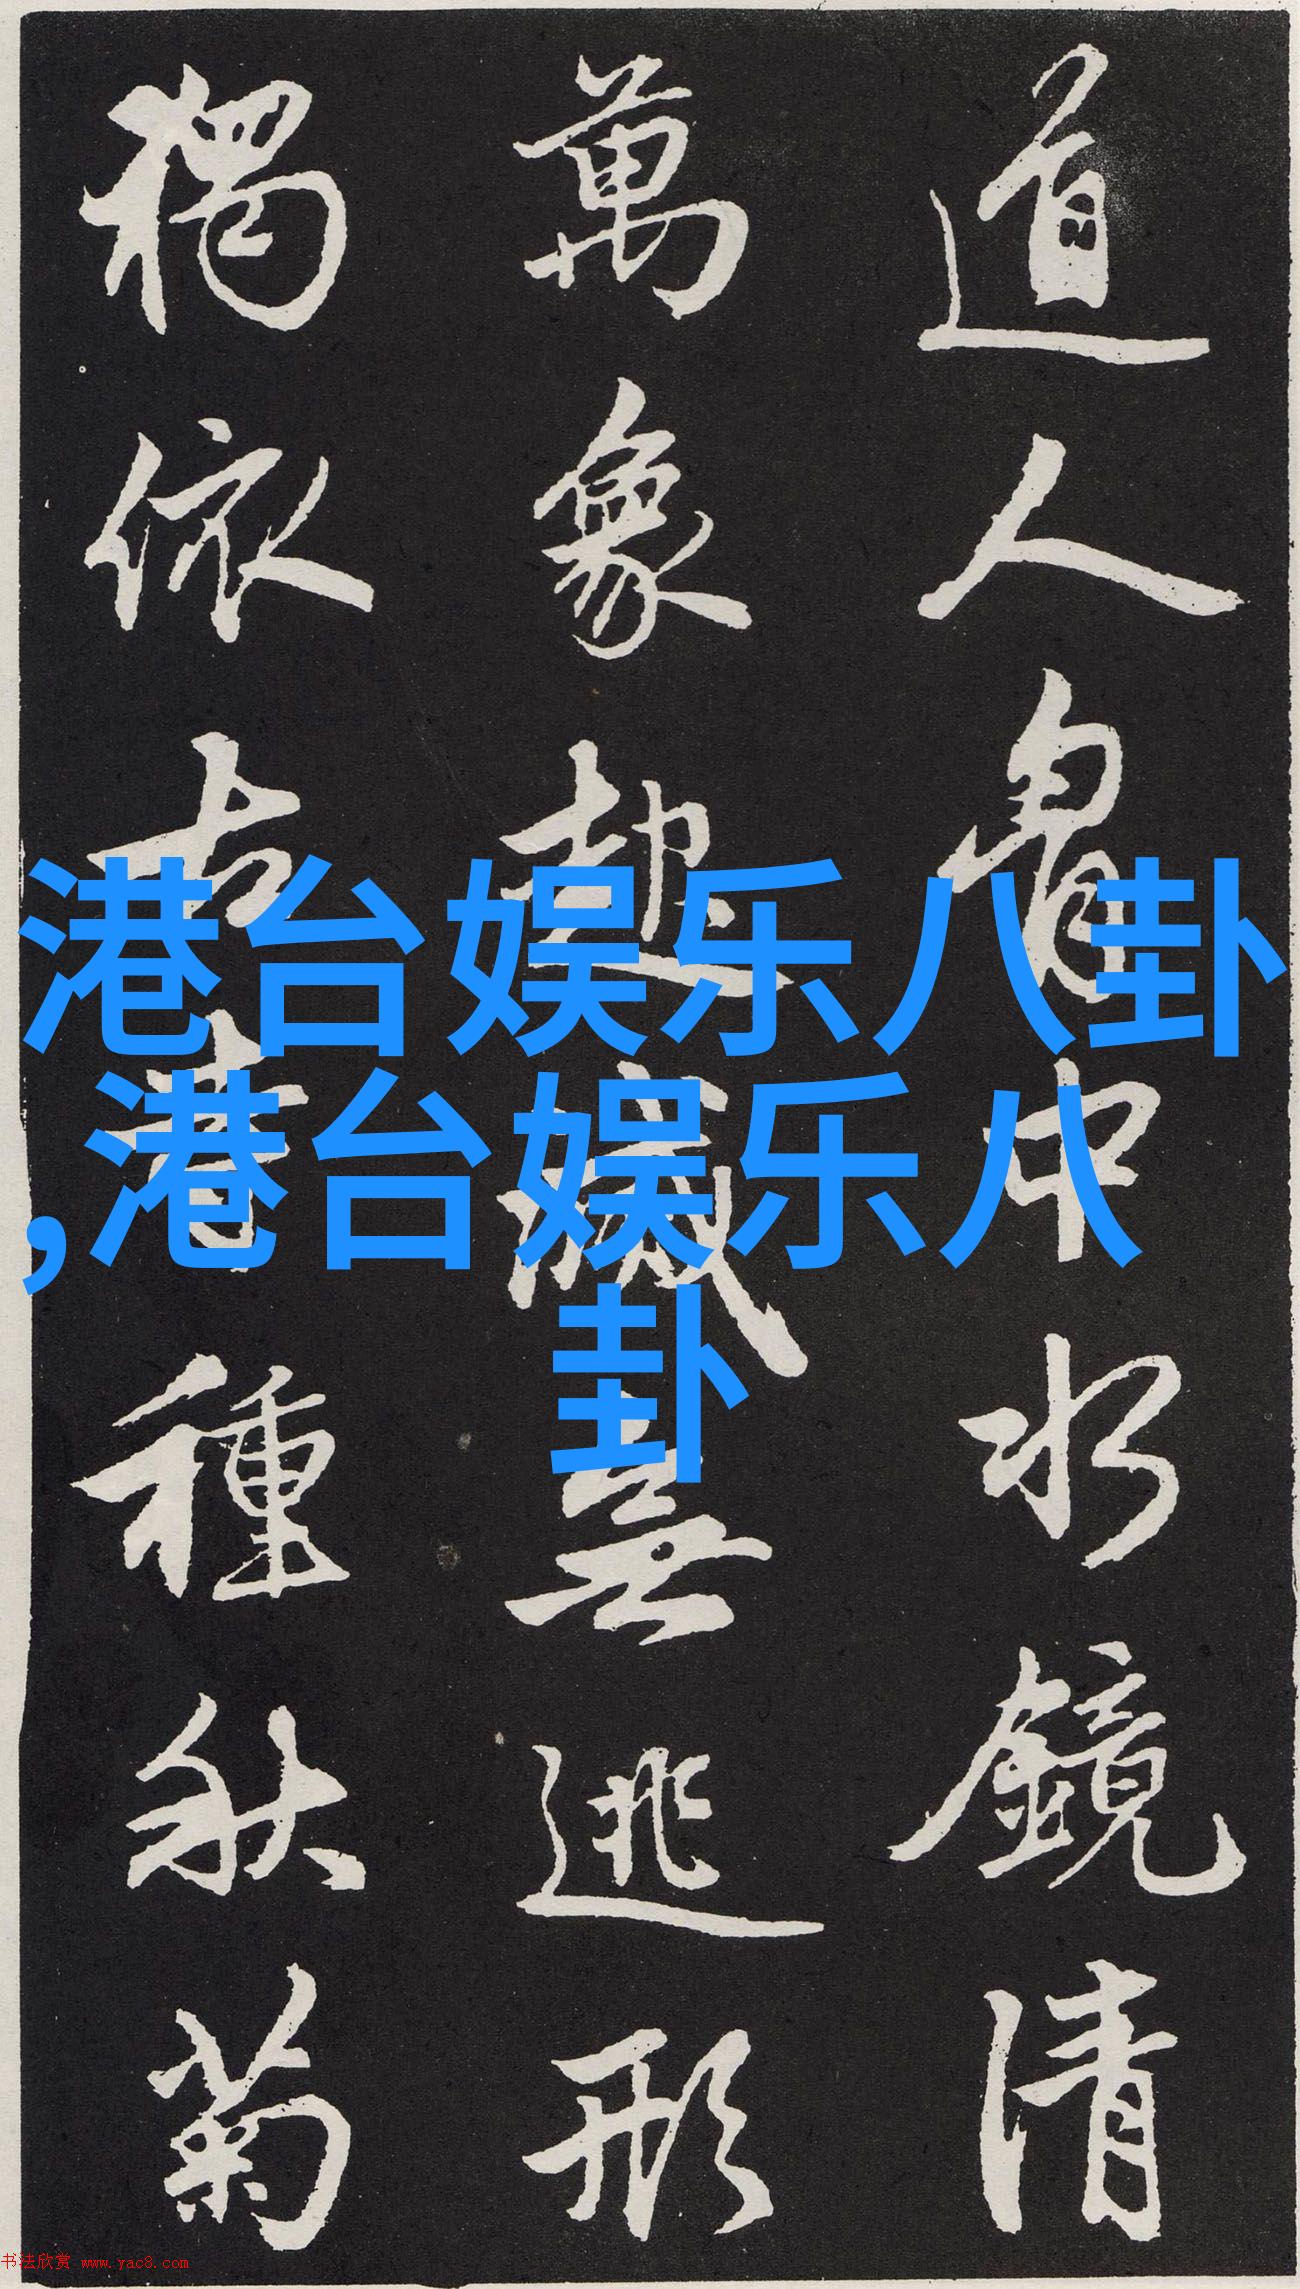 道人胷中水鏡清
萬象起滅無逃形
獨依古寺種秋菊
港台娱乐八卦
,港台娱乐八
卦
书法欣赏 www.yac8.com